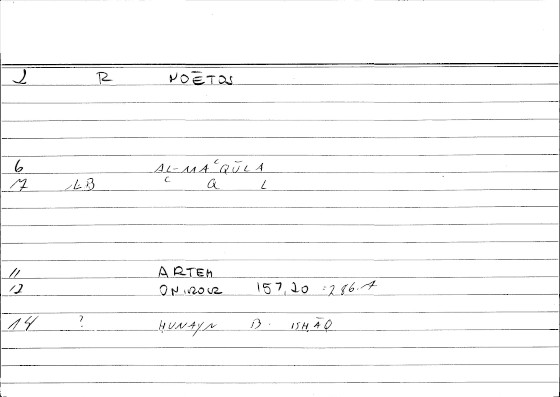 2 R NOĒTOS
6 AL-MAʿQŪLA
7 LB ʿ Q L
11 ARTEM
12 ONIROCR 157,20 :286.1
14 ? HUNAYN B. ISHĀQ